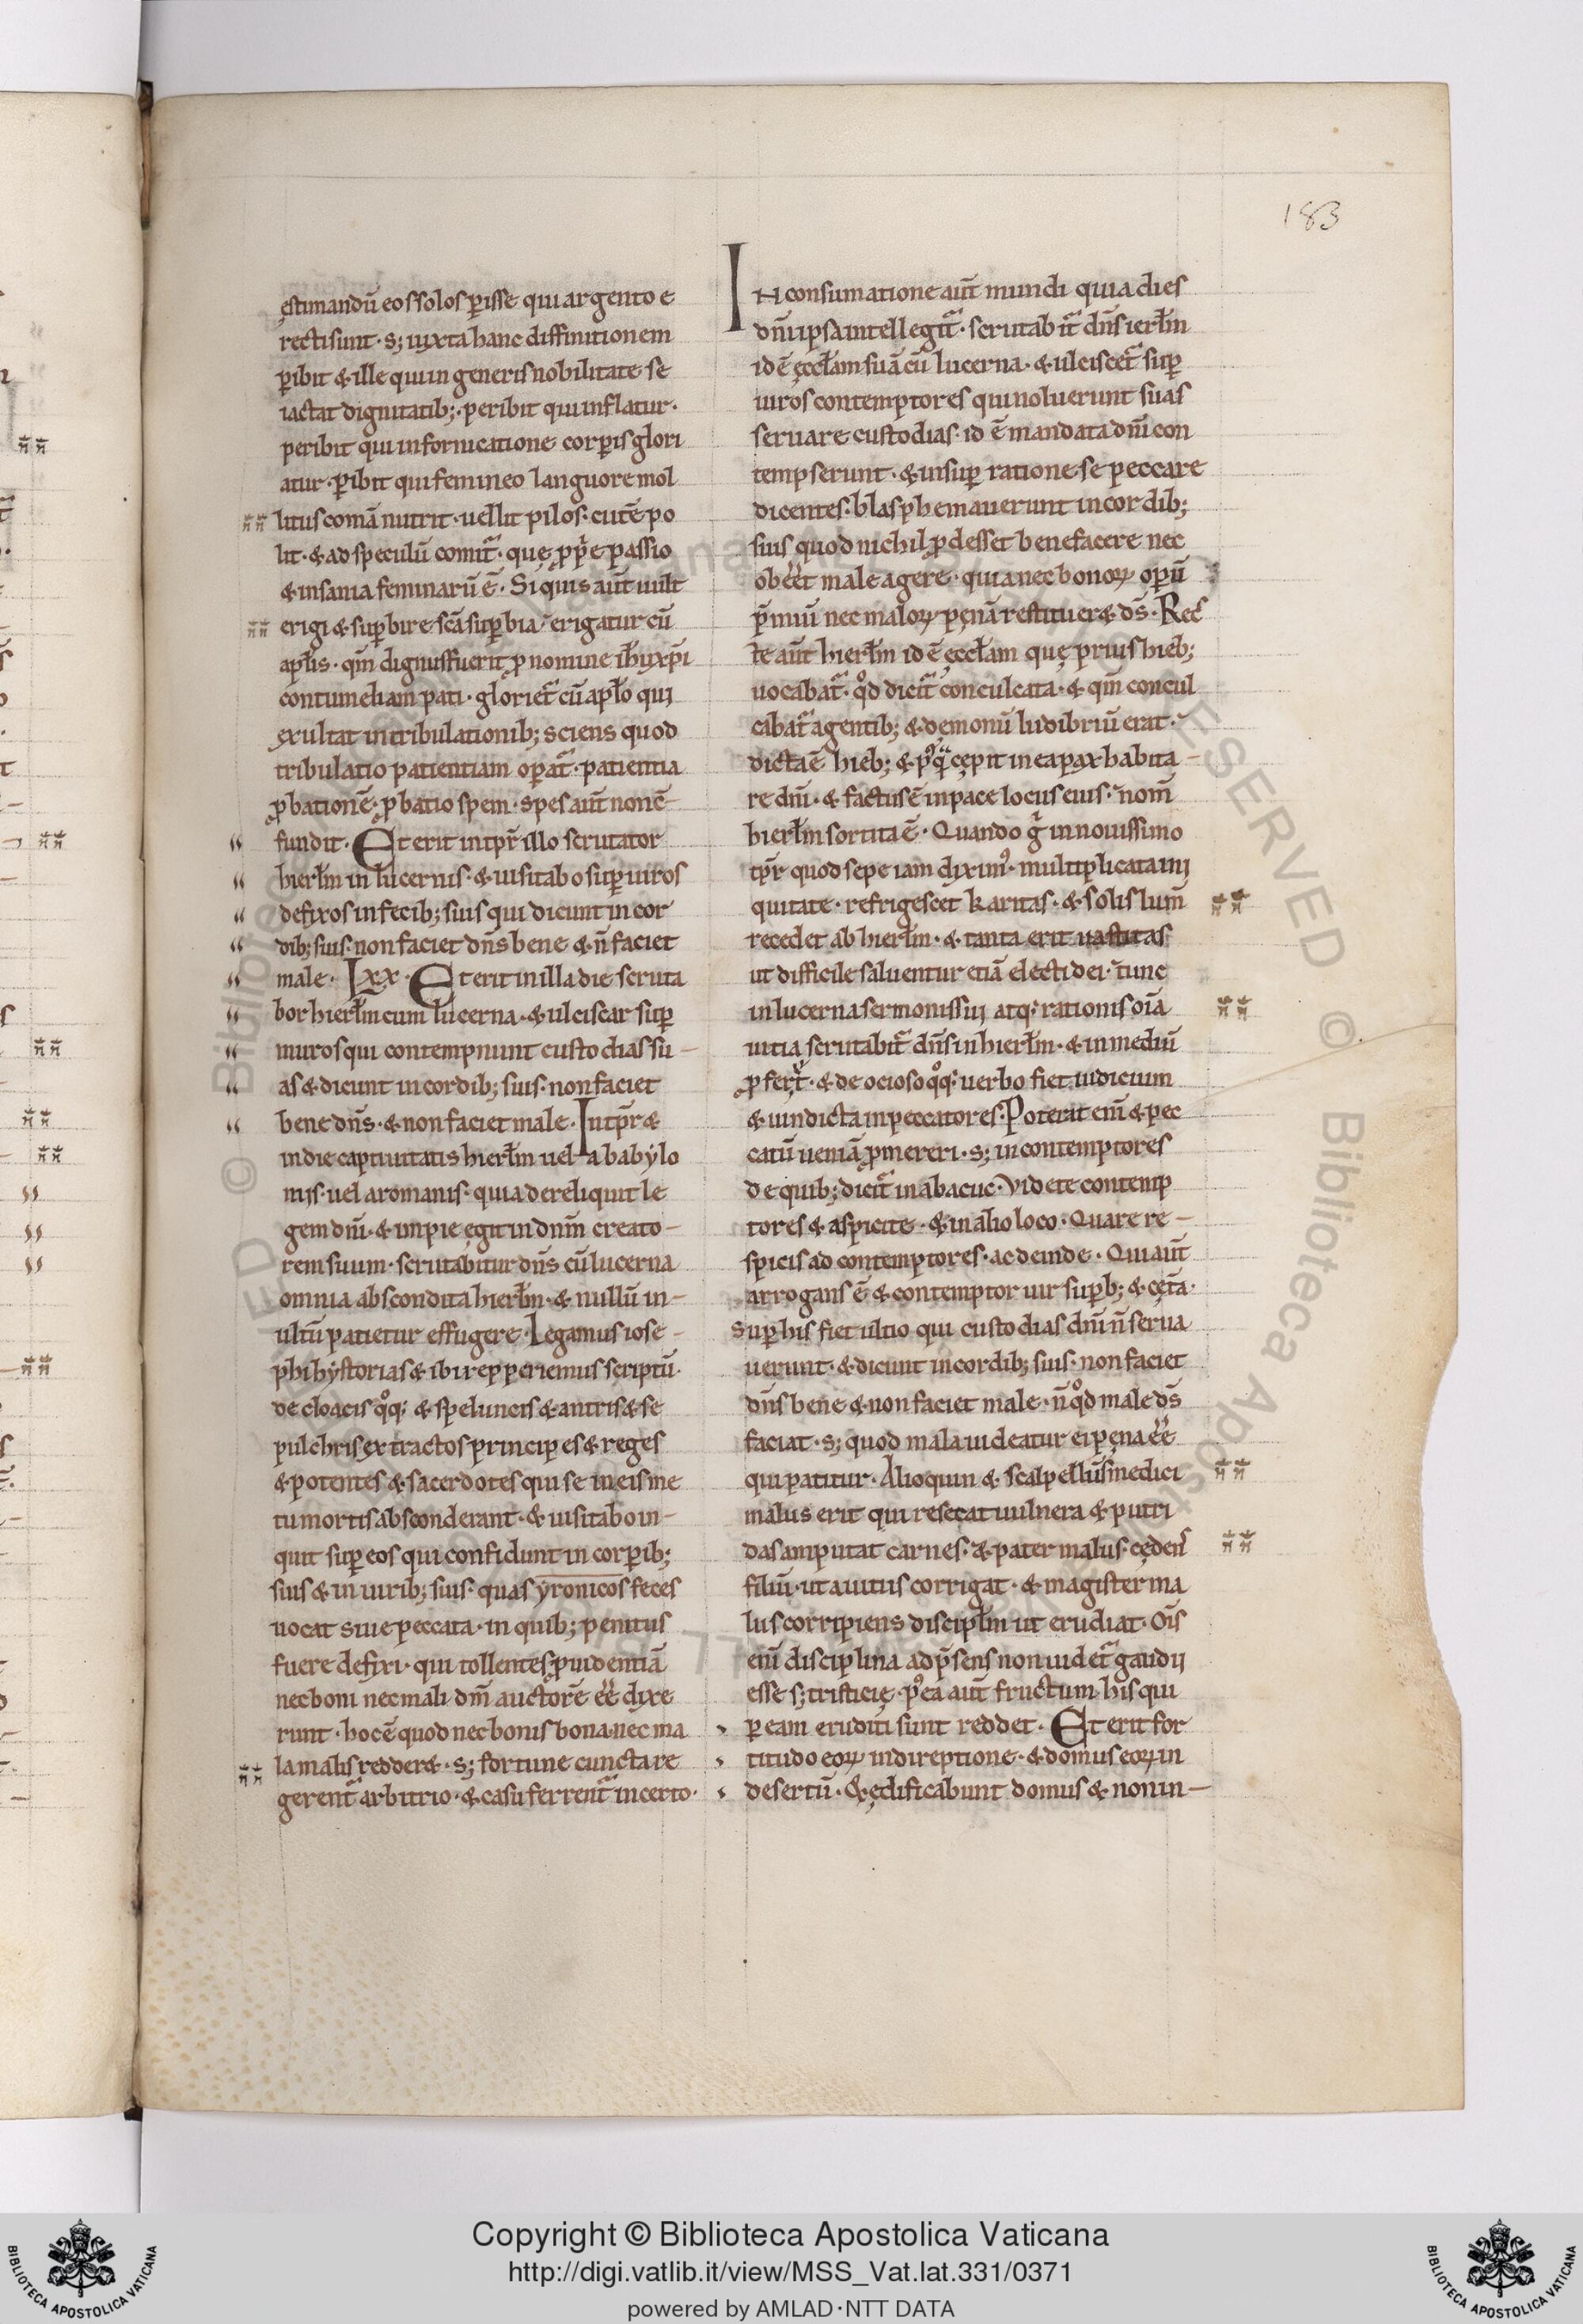 183
ęstimandū eos solos ꝑisse qui argento e
recti sunt · s; iuxta hanc diffinitionem
ꝑibit & ille qui in generis nobilitate se
iactat dignitatib; · peribit qui inflatur ·
peribit qui in fornicatione corꝑis glori
atur · ꝑibit qui femineo languore mol
litus comā nutrit · uellit pilos · cutē po
lit · & ad speculū comit᷑ · quę ꝓpͥe passio
& insania feminarū ē · Si quis aut̄ uult
erigi & suꝑbire sc̄a suꝑbia · erigatur cū
apl̄is · qm̄ dignus fuerit ꝓ nomine ih̄u xp̄i
contumeliam pati · gloriet᷑ cū apl̄o qui
exultat in tribulationib; sciens quod
tribulatio patientiam oꝑat᷑ · patientia
ꝓbationē · ꝓbatio spem · spes aut̄ non ē
fundit · Et erit in tp̄r illo scrutator
hierl̄m in lucernis · & uisitabo suꝑ uiros
defixos in fecib; suis qui dicunt in cor
dib; suis · non faciet dn̄s bene & n̄ faciet
male · Lxx · Et erit in illa die scruta
bor hierl̄m cum lucerna · & ulciscar suꝑ
muros qui contempnunt custodias su-
as & dicunt in cordib; suis · non faciet
bene dn̄s · & non faciet male · Intp̄r &
in die captiuitatis hierl̄m uel a babylo
niis · uel a romanis · quia dereliquit le
gem dn̄i · & impie egit in dnm̄ creato-
rem suum · scrutabitur dn̄s cū lucerna
omnia abscondita hierl̄m · & nullū in-
ultū patietur effugere · Legamus iose-
phi hystorias & ibi repperiemus scriptū ·
de cloacis qͦq; & speluncis & antris & se
pulchris extractos principes & reges
& potentes & sacerdotes qui se in eis me
tu mortis absconderant · & uisitabo in-
quit suꝑ eos qui confidunt in corꝑib;
suis & in uirib; suis · quas yronicos feces
uocat siue peccata · in quib; penitus
fuere defixi · qui tollentes ꝓuidentiā
nec boni nec mali dm̄ auctorē ee̅ dixe
runt · hoc ē quod nec bonis bona nec ma
la malis redder& · s; fortune cuncta re
gerent᷑ arbitrio · & casu ferrent᷑ incerto ·
In consumatione aut̄ mundi quia dies
dn̄i ipsa intellegit᷑ · scrutabit᷑ dn̄s ierl̄m
id ē ęccl̄am suā cū lucerna · & ulciscet᷑ suꝑ
uiros contemptores qui noluerunt suas
seruare custodias · id ē mandata dn̄i con
tempserunt · & insuꝑ ratione se peccare
dicentes · blasphemauerunt in cordib;
suis quod nichil ꝓdesset benefacere nec
obee̅t male agere · quia nec bonoꝝ oꝑū
p̄miū nec maloꝝ pęnā restituer& ds̄ · Rec
te aut̄ hierl̄m id ē ęccl̄am quę prius hieb;
uocabat᷑ · qͦd dicit᷑ conculcata · & qm̄ concul
cabat᷑ a gentib; & dęmonū ludibriū erat ·
dicta ē hieb; & pꝰqͣ cępit in ea pax habita-
re dn̄i · & factus ē in pace locus eius · nom̄
hierl̄m sortita ē · Quando gͥ in nouissimo
tp̄r quod sepe iam diximꝰ · multiplicata ini
quitate · refrigescet karitas · & solis lum̄
recedet ab hierl̄m · & tanta erit uastitas
ut difficile saluentur etiā electi dei · tunc
in lucerna sermonis sui atq; rationis oīa
uitia scrutabit᷑ dn̄s in hierl̄m · & in mediū
ꝓfert᷑ · & de ocioso qͦq; uerbo fiet iudicium
& uindicta in peccatores · Poterit eni̅ & pec
catū ueniā ꝓmereri · s; in contemptores
de quib; dicit᷑ in abacuc · Videte contemp
tores & aspicite · & in alio loco · Quare re-
spicis ad contemptores · ac deinde · Qui aut̄
arrogans ē & contemptor uir suꝑb; & cęta ·
Suꝑ his fiet ultio qui custodias dn̄i n̄ serua
uerunt · & dicunt in cordib; suis · non faciet
dn̄s bene & non faciet male · n̄ qͦd male ds̄
faciat · s; quod mala uideatur ei pęna ee̅
qui patitur · Alioquin & scalpellus medici
malus erit qui resecat uulnera & putri
das amputat carnes · & pater malus · cędens
filiū · ut a uitiis corrigat · & magister ma
lus corripiens discipl̄m ut erudiat · Oīs
eni̅ disciplina ad p̄sens non uidet᷑ gaudii
esse s; tristicię · pꝰea aut̄ fructum his qui
ꝑ eam eruditi sunt reddet · Et erit for
titudo eoꝝ in direptione · & domus eoꝝ in
desertū · & ędificabunt domus & non in-
Copyright © Biblioteca Apostolica Vaticana
http://digi.vatlib.it/view/MSS_Vat.lat.331/0371
powered by AMLAD·NTT DATA
BIBLIOTECA APOSTOLICA VATICANA
BIBLIOTECA APOSTOLICA VATICANA